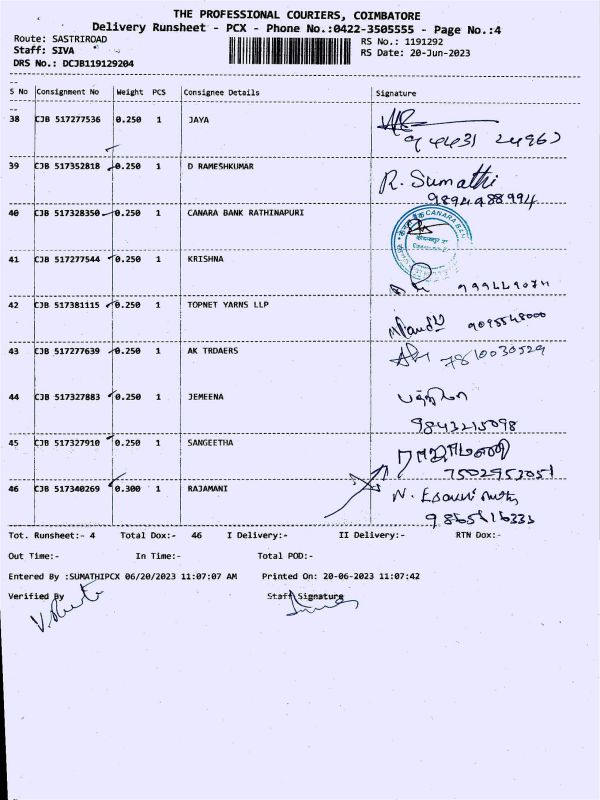 THE PROFESSIONAL COURIERS, COIMBATORE
Delivery Runsheet - PCX - Phone No.:0422-3505555 - Page No.:4
Route: SASTRIROAD RS No.: 1191292
Staff: SIVA RS Date: 20-Jun-2023
DRS No.: DCJB119129204
S No Consignment No Weight PCS Consignee Details Signature
38 CJB 517277536 0.250 1 JAYA
39 CJB 517352818 0.250 1 D RAMESHKUMAR R. Sumathi
9894988994
40 CJB 517328350 0.250 1 CANARA BANK RATHINAPURI
CANARA BANK
41 CJB 517277544 0.250 1 KRISHNA
42 CJB 517381115 0.250 1 TOPNET YARNS LLP
43 CJB 517277639 0.250 1 AK TRDAERS 7810030529
44 CJB 517327883 0.250 1 JEMEENA
9843215098
45 CJB 517327910 0.250 1 SANGEETHA
7502953051
46 CJB 517340269 0.300 1 RAJAMANI
Tot. Runsheet:- 4 Total Dox:- 46 I Delivery:- II Delivery:- RTN Dox:-
Out Time:- In Time:- Total POD:-
Entered By :SUMATHIPCX 06/20/2023 11:07:07 AM Printed On: 20-06-2023 11:07:42
Verified By Staff Signature